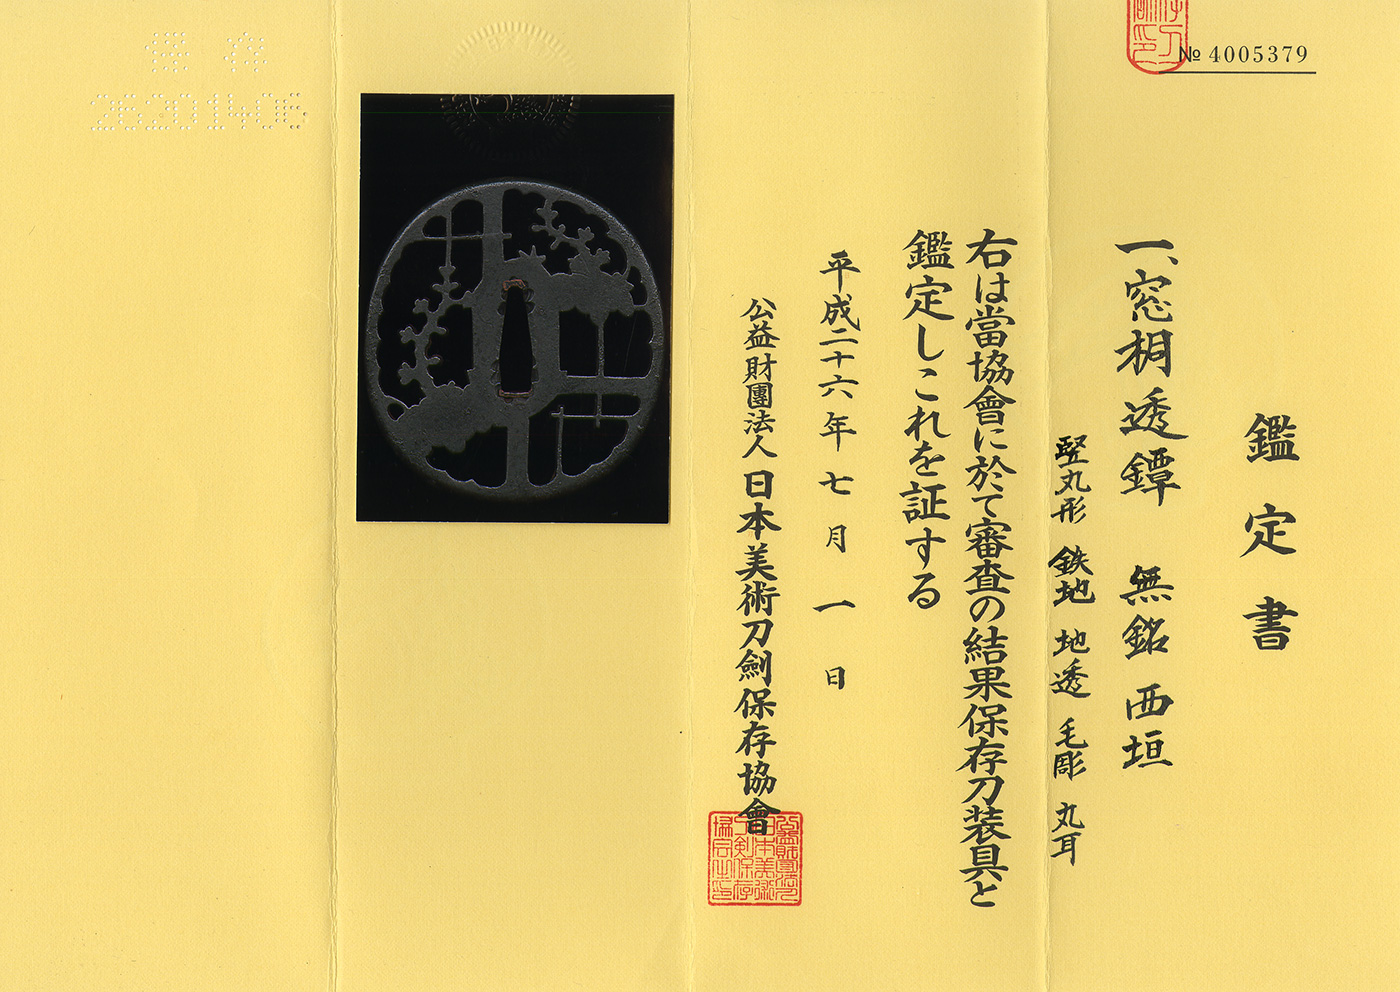 № 4005379
鑑定書
一、窓梅透鐔 無銘 西垣
竪丸形 鉄地 地透 毛彫 丸耳
右は當協會に於て審査の結果保存刀装具と
鑑定しこれを証する
平成二十六年七月一日
公益財團法人 日本美術刀劍保存協會
保存
26201406